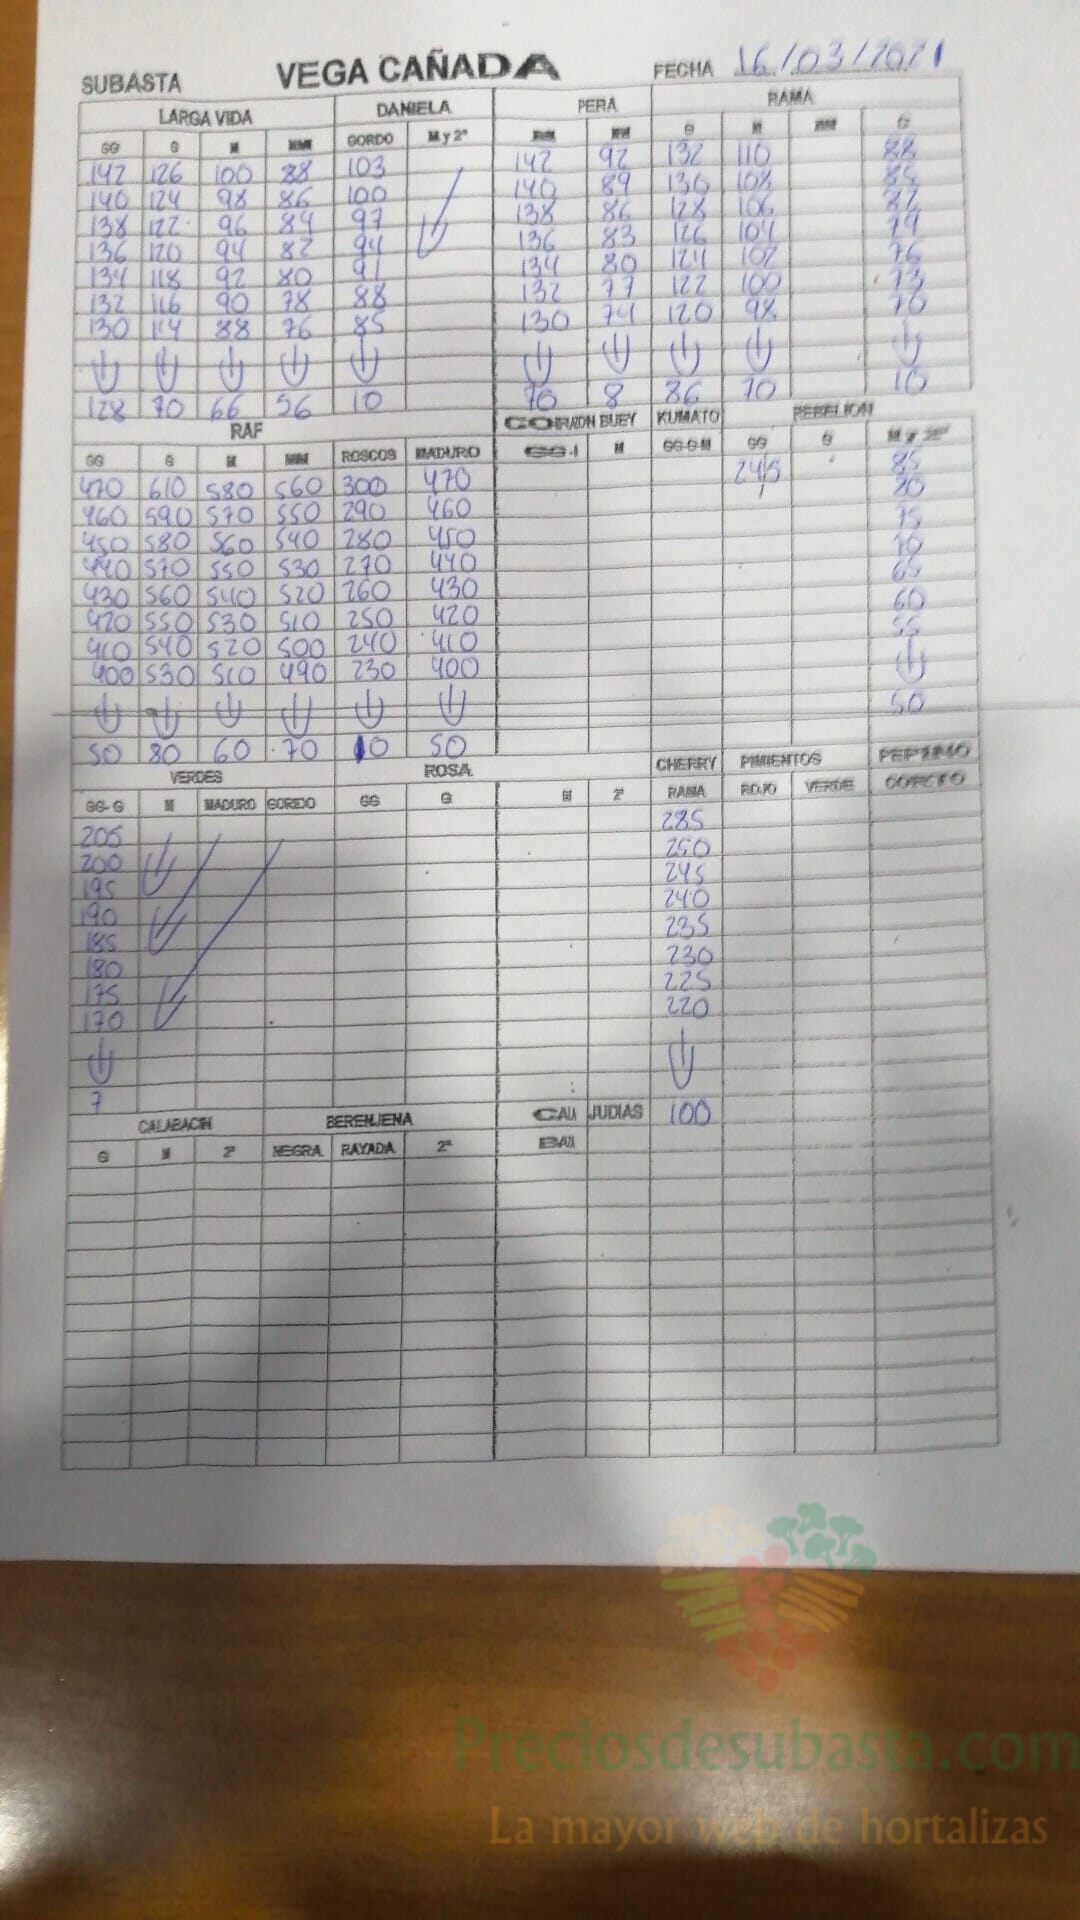 SUBASTA VEGA CAÑADA FECHA 16/03/2021
LARGA VIDA DANIELA PERA RAMA
GG G M MM GORDO M y 2ª MM G M MM G
142 126 100 88 103 142 92 132 110 88
140 124 98 86 100 140 89 130 108 85
138 122 96 84 97 138 86 128 106 82
136 120 94 82 94 136 83 126 104 79
134 118 92 80 91 134 80 124 102 76
132 116 90 78 88 132 77 122 100 73
130 114 88 76 85 130 74 120 98 70
128 70 66 56 10 70 8 86 70 10
RAF CORAZON BUEY KUMATO REBELION
GG G M MM ROSCOS MADURO GG-I M GG-G-M GG G M y
470 610 580 560 300 470 245 85
460 590 570 550 290 460 80
450 580 560 540 280 450 75
440 570 550 530 270 440 70
430 560 540 520 260 430 65
420 550 530 510 250 420 60
410 540 520 500 240 410 55
400 530 510 490 230 400
50 80 60 70 10 50 50
VERDES ROSA CHERRY PIMIENTOS PEPINO
GG-G M MADURO GORDO GG G M 2ª RAMA ROJO VERDE CORTO
205 285
200 250
195 245
190 240
185 235
180 230
175 225
170 220
7 100
CALABACIN BERENJENA CALA JUDIAS
G M 2ª NEGRA RAYADA 2ª BAZA
Preciosdesubasta.com
La mayor web de hortalizas